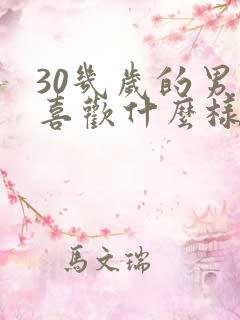 30幾歲的男
喜歡什麼樣
馬文瑞